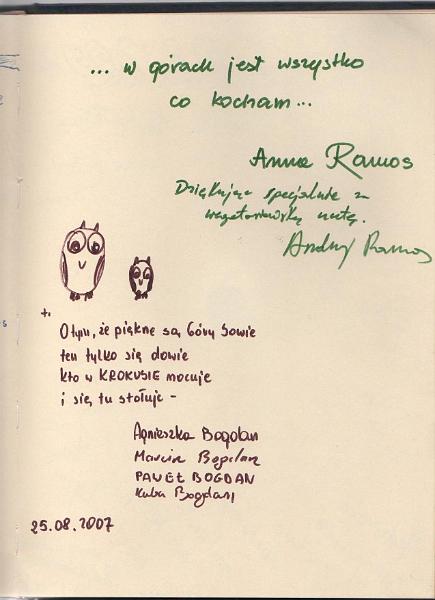 ... w górach jest wszystko
co kocham...
Anna Ramos
Dziękując specjalnie za
nutę.
Andrzej Ramos
O tym, że piękne są Góry Sowie
ten tylko się dowie
kto w KROKUSIE nocuje
i się tu stołuje –
Agnieszka Bogdan
Marcin Bogdan
PAWEŁ BOGDAN
Kuba Bogdan
25.08.2007